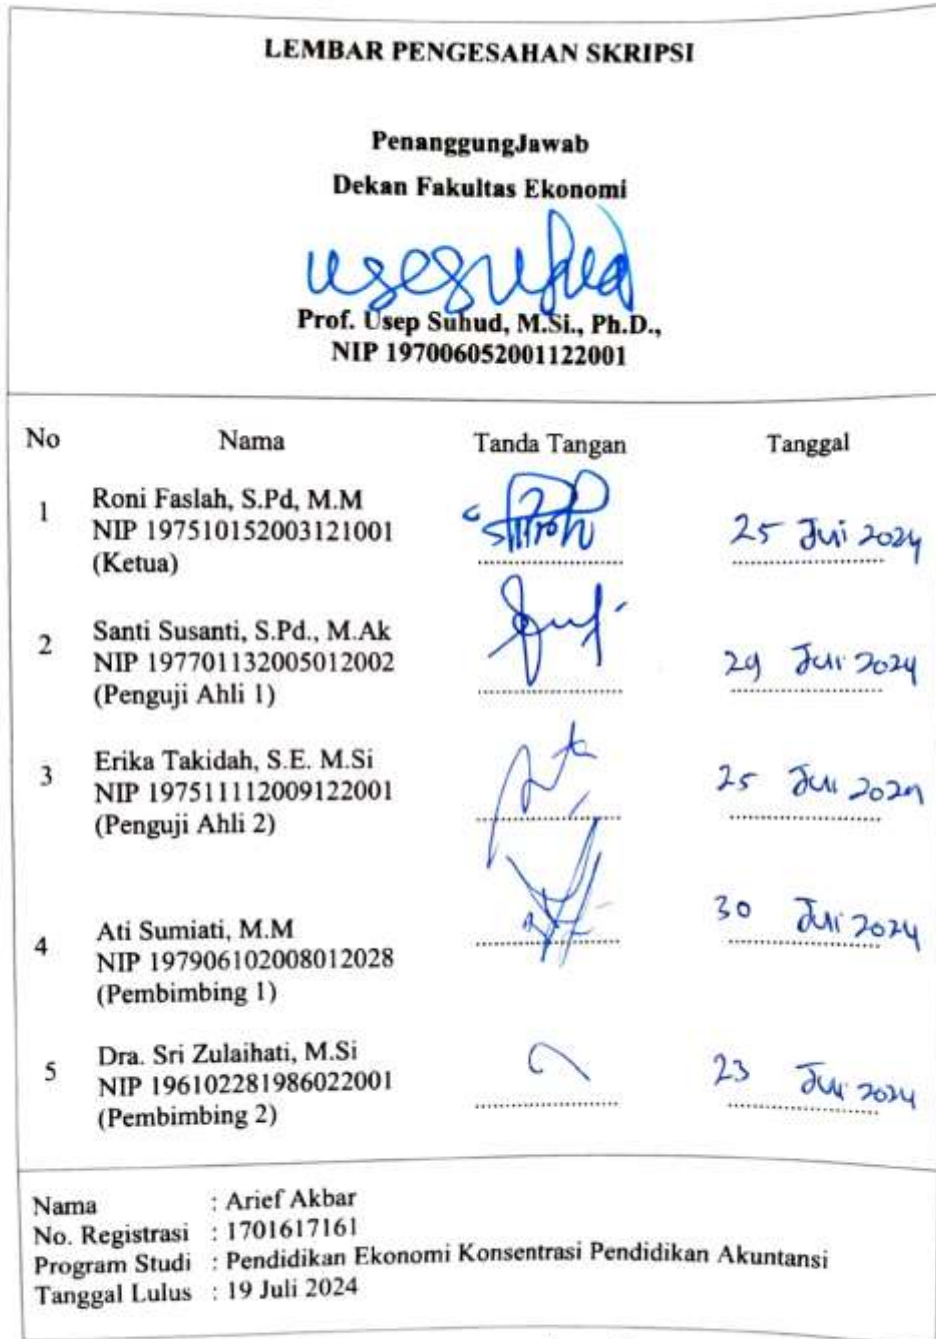 LEMBAR PENGESAHAN SKRIPSI
PenanggungJawab
Dekan Fakultas Ekonomi
Prof. Usep Suhud, M.Si., Ph.D.,
NIP 197006052001122001
No Nama Tanda Tangan Tanggal
1 Roni Faslah, S.Pd, M.M
NIP 197510152003121001
(Ketua)
25 Juli 2024
2 Santi Susanti, S.Pd., M.Ak
NIP 197701132005012002
(Penguji Ahli 1)
29 Juli 2024
3 Erika Takidah, S.E. M.Si
NIP 197511112009122001
(Penguji Ahli 2)
25 Juli 2024
4 Ati Sumiati, M.M
NIP 197906102008012028
(Pembimbing 1)
30 Juli 2024
5 Dra. Sri Zulaihati, M.Si
NIP 196102281986022001
(Pembimbing 2)
23 Juli 2024
Nama : Arief Akbar
No. Registrasi : 1701617161
Program Studi : Pendidikan Ekonomi Konsentrasi Pendidikan Akuntansi
Tanggal Lulus : 19 Juli 2024